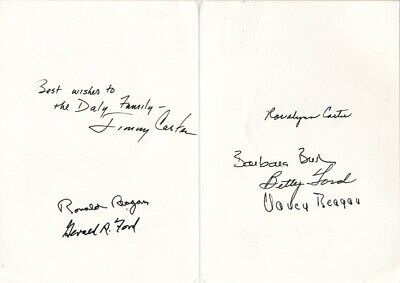 Best wishes to
the Daly Family –
Jimmy Carter
Ronald Reagan
Gerald R. Ford
Rosalynn Carter
Barbara Bush
Betty Ford
Nancy Reagan